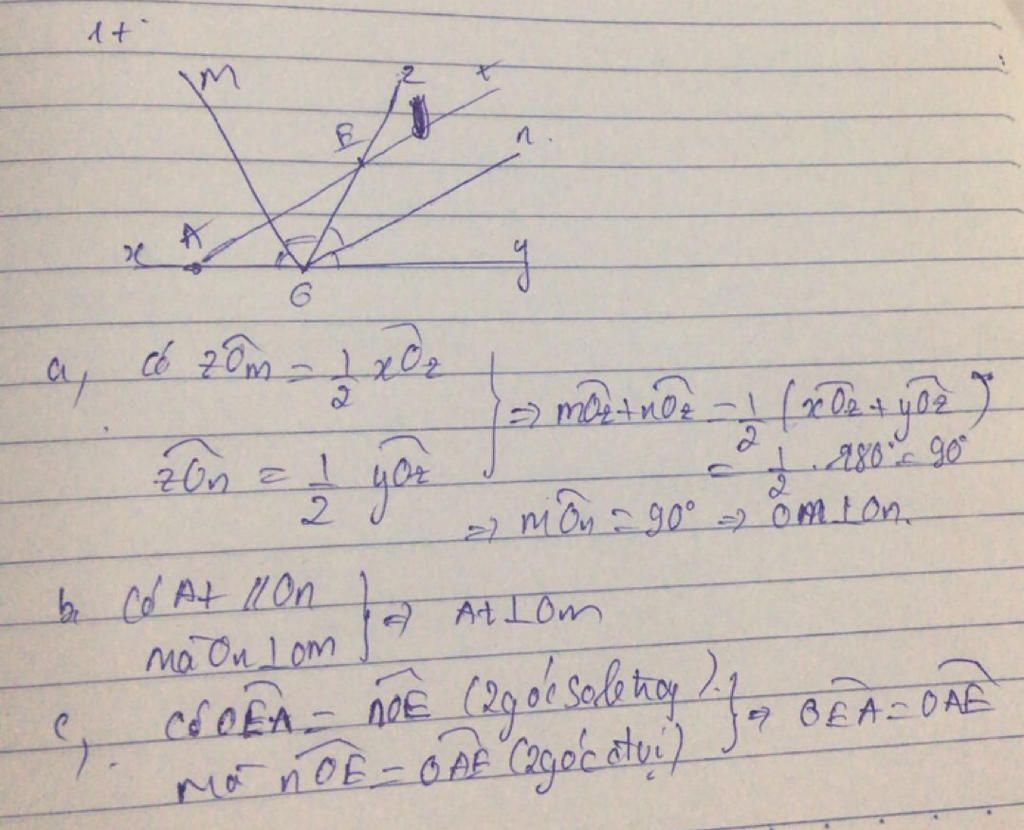 1+
m z t
E n.
x A y
O
a, có zÔm = 1/2 xÔz
zÔn = 1/2 yÔz
} => mÔz + nÔz = 1/2 (xÔz + yÔz)
= 1/2 . 180° = 90°
=> mÔn = 90° => Om ⊥ On.
b, Có At // On
mà On ⊥ Om
} => At ⊥ Om
c, Có OÊA = nÔE (2 góc so le trog).
mà nÔE = OÂE (2 góc đ vị)
} => OÊA = OÂE